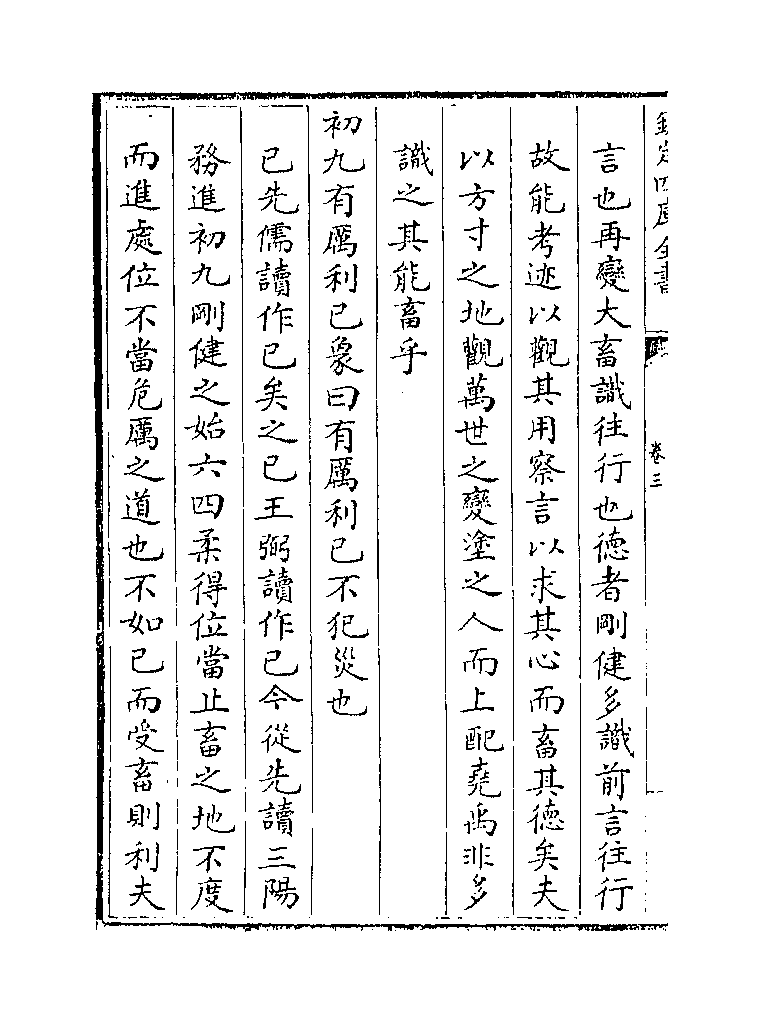 欽定四庫全書
卷三
言也再變大畜識往行也德者剛健多識前言往行
故能考迹以觀其用察言以求其心而畜其德矣夫
以方寸之地觀萬世之變塗之人而上配堯禹非多
識之其能畜乎
初九有厲利已象曰有厲利已不犯災也
已先儒讀作已矣之已王弼讀作已今從先讀三陽
務進初九剛健之始六四柔得位當止畜之地不度
而進處位不當危厲之道也不如已而受畜則利夫